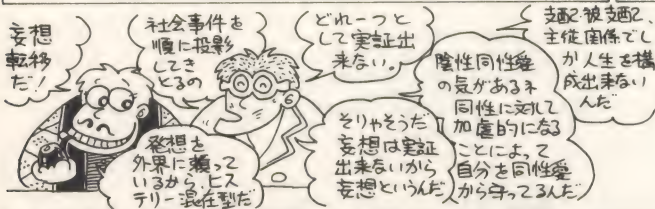 妄想
転移
だ!
社会事件を
順に投影
してき
とるの
発想を
外界に頼って
いるから、ヒス
テリー混在型だ
どれ一つと
して実証出
来ない。
そりゃそうだ
妄想は実証
出来ないから
妄想というんだ
陰性同性愛
の気があるネ
同性に対して
加虐的になる
ことによって
自分を同性愛
から守ってるんだ
支配・被支配、
主従関係でし
か人生を構
成出来ない
んだ